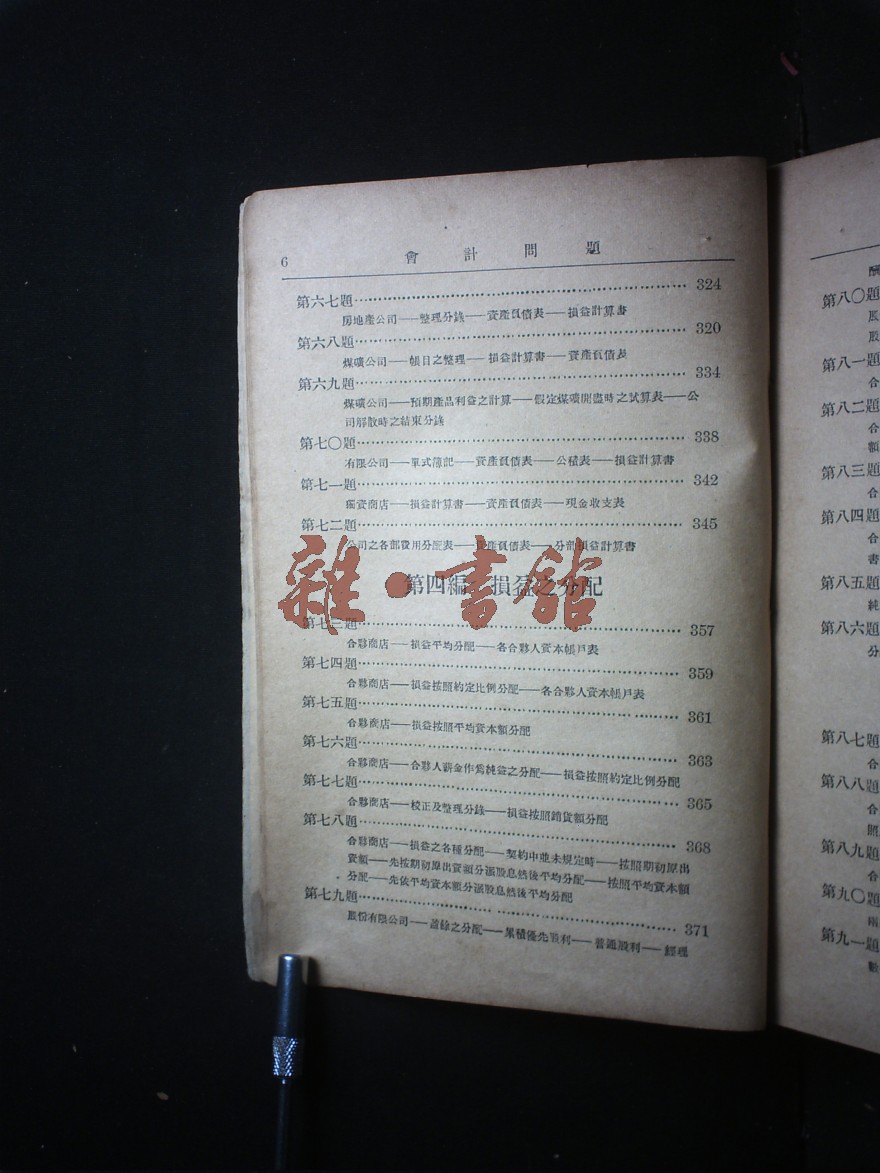 6 會計問題
第六七題 324
房地產公司——整理分錄——資產負債表——損益計算書
第六八題 320
煤礦公司——帳目之整理——損益計算書——資產負債表
第六九題 334
煤礦公司——預期產品利益之計算——假定煤礦開盡時之試算表——公
司解散時之結束分錄
第七〇題 338
有限公司——單式簿記——資產負債表——公積表——損益計算書
第七一題 342
獨資商店——損益計算書——資產負債表——現金收支表
第七二題 345
公司之各部費用分配表——資產負債表——分部損益計算書
雜·書舘
第四編 損益之分配
第七三題 357
合夥商店——損益平均分配——各合夥人資本帳戶表
第七四題 359
合夥商店——損益按照約定比例分配——各合夥人資本帳戶表
第七五題 361
合夥商店——損益按照平均資本額分配
第七六題 363
合夥商店——合夥人薪金作為純益之分配——損益按照約定比例分配
第七七題 365
合夥商店——校正及整理分錄——損益按照銷貨額分配
第七八題 368
合夥商店——損益之各種分配——契約中並未規定時——按照期初原出
資額——先按期初原出資額分派股息然後平均分配——按照平均資本額
分配——先依平均資本額分派股息然後平均分配
第七九題 371
股份有限公司——盈餘之分配——累積優先股利——普通股利——經理
第八〇題
第八一題
合
第八二題
合
額
第八三題
合
第八四題
合
書
第八五題
純
第八六題
分
第八七題
合
第八八題
合
照
第八九題
合
第九〇題
兩
第九一題
數